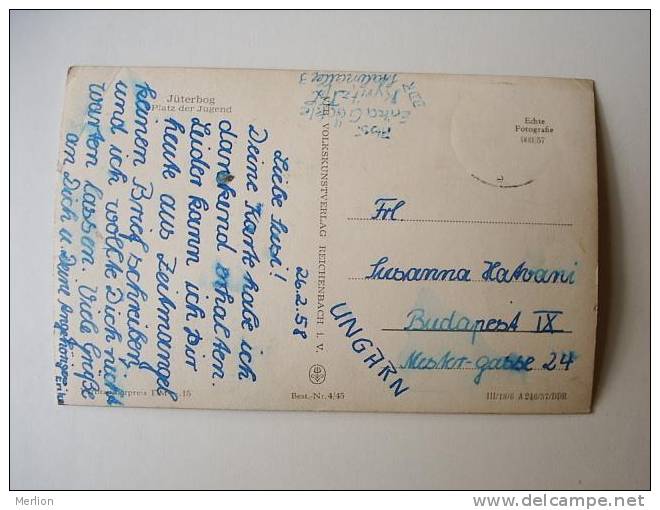 Jüterbog
Platz der Jugend
26.2.58
Liebe Susi!
Deine Karte habe ich
dankend erhalten.
Leider kann ich Dir
heute aus Zeitmangel
keinen Brief schreiben
und ich wollte Dich nicht
warten lassen. Viele Grüße
an Dich u. Deine Angehörigen
Erika
Abs.
Erika
DDR
VOLKSKUNSTVERLAG REICHENBACH i. V.
Best.-Nr. 4/45
Echte
Fotografie
Frl
Susanna Hatvani
Budapest IX
Mester-gasse 24
UNGARN
III/18/6 A 246/57/DDR
Merlion
http://www.delcampe.net